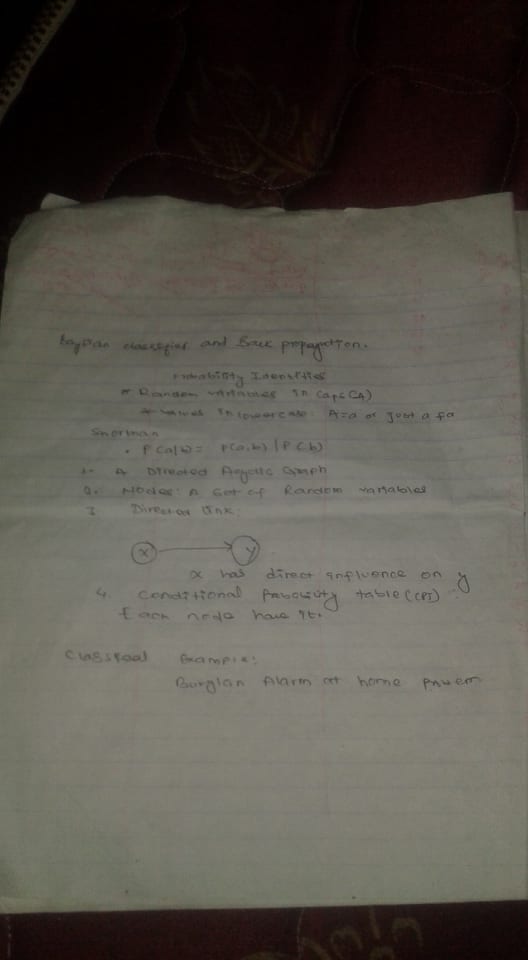 Baysian classifier and Back propagation.
Probability Identities
* Random variables in caps (A)
* values in lowercase: A=a or just a fo
Shorman
• P(a|b) = P(a,b) | P(b)
1. A Directed Acyclic Graph
2. Nodes: A Set of Random variables
3 Directed link:
X y
X has direct influence on y
4. Conditional Probability table (CPT):
Each node have it.
Classical Example:
Burglar Alarm at home